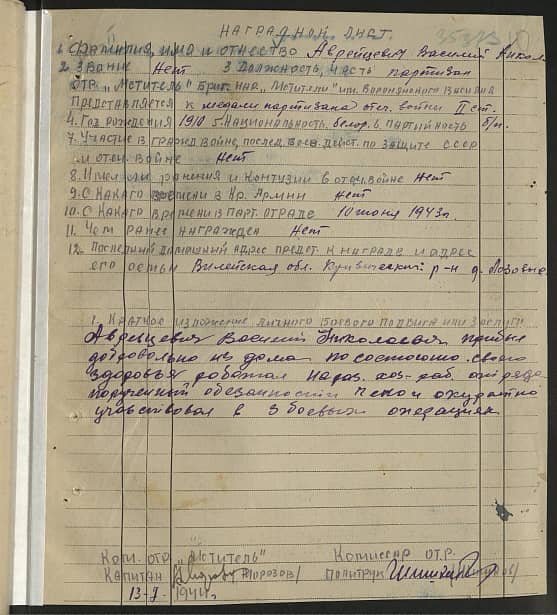 НАГРАДНОЙ ЛИСТ.
1. Фамилия, имя и отчество Аврейцевич Василий Никол
2. Звание Нет 3. Должность, часть партизан
отр. "Мститель" бриг. "Мстители" им. Воронянского
представляется к медали партизана отеч. войны II ст.
4. Год рождения 1910 5. Национальность белор. 6. Партийность б/п.
7. Участие в гражд. войне, послед. боев. дейст. по защите СССР
и отеч. войне Нет
8. Имел ли ранения и контузии в отеч. войне Нет
9. С какаго времени в Кр. Армии Нет
10. С какаго времени в парт. отраде 10 июня 1943 г.
11. Чем ранее награжден Нет
12. Последний домашний адрес предст. к награде и адрес
его семьи Вилейская обл. Кривический р-н д. Лозовые
1. Краткое изложение личного боевого подвига или заслуги
Аврейцевич Василий Николаевич прибыл
добровольно из дома по состоянию своего
здоровья работал на раз. хоз. раб. отряда
порученный обезанности и окуратно
участвовал в 3 боевых операциях
Ком. отр. "Мститель" Комиссар отр.
Капитан /Морозов/ Политрук
1944 г.